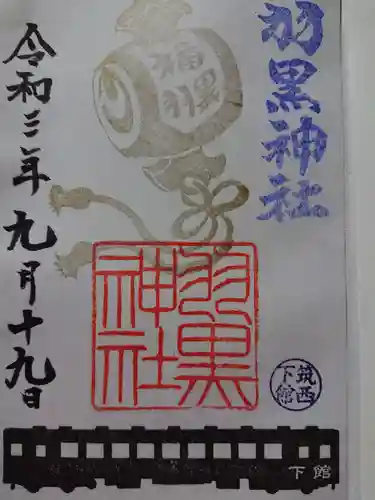 羽黒神社
福
羽黒
令和三年九月十九日
羽黒
神社
筑西
下館
下館